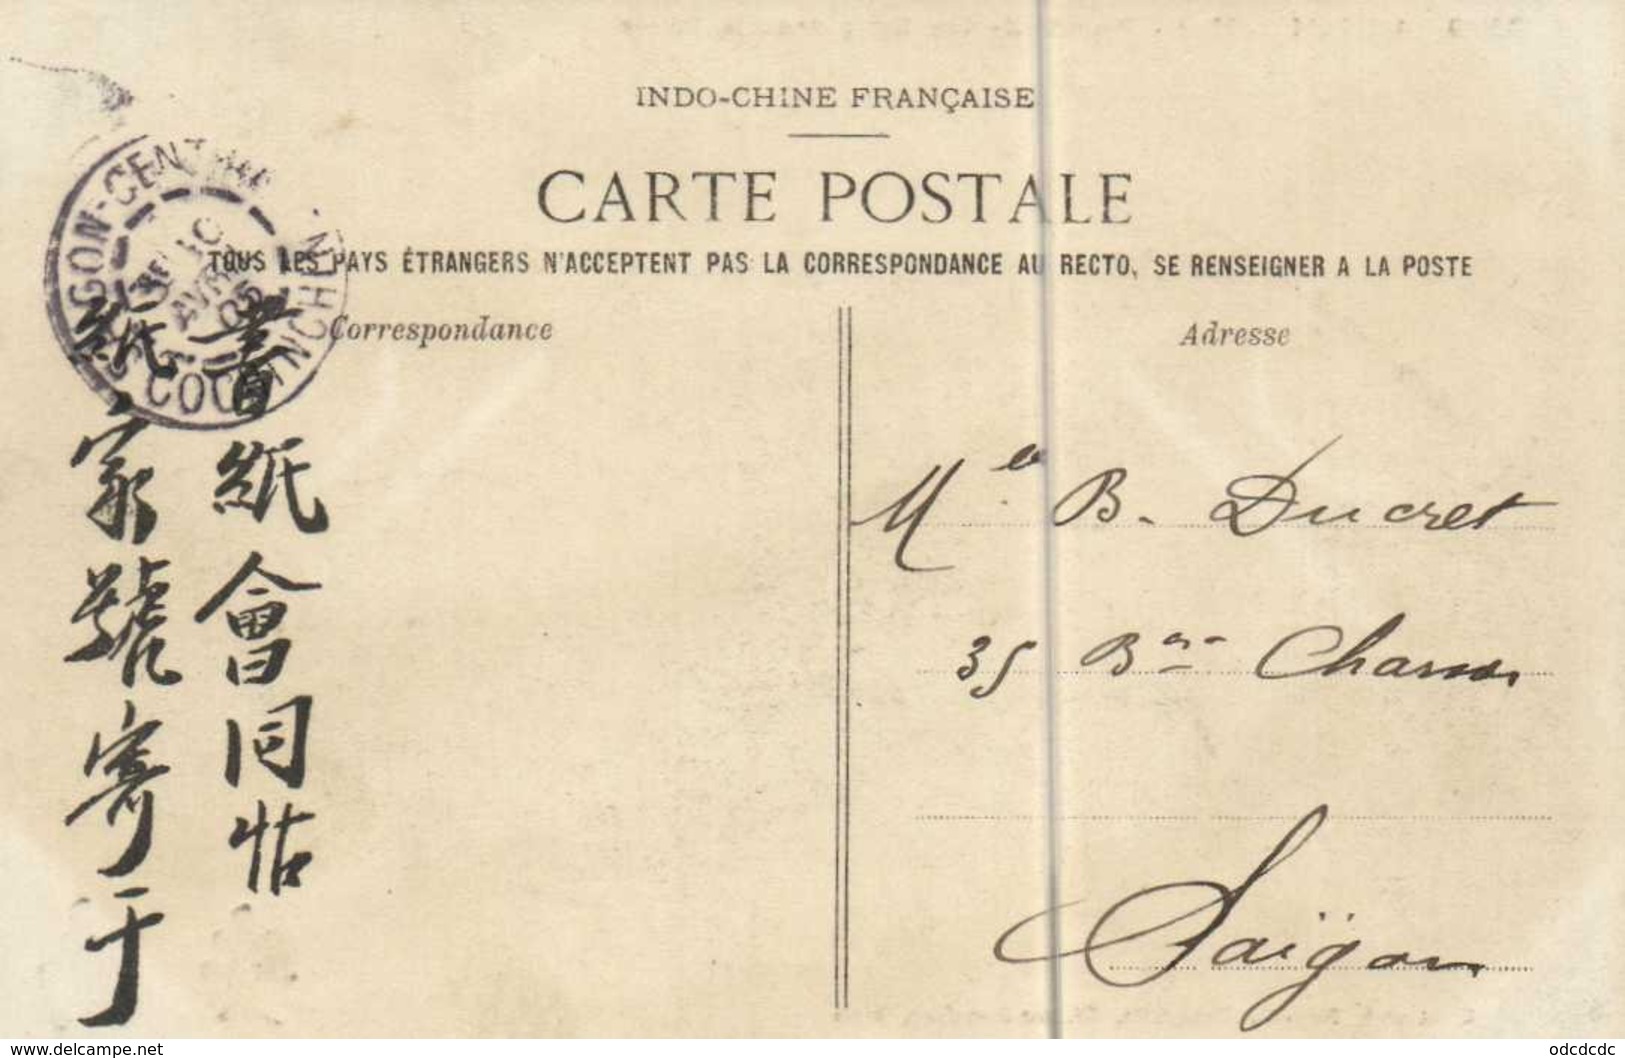 INDO-CHINE FRANÇAISE
CARTE POSTALE
TOUS LES PAYS ÉTRANGERS N'ACCEPTENT PAS LA CORRESPONDANCE AU RECTO, SE RENSEIGNER A LA POSTE
Correspondance
Adresse
SAIGON-CENTRAL
AVRIL
05
COCHINCHINE
書紙會同帖
家號寄于
Mlle B. Ducret
35 Bard Charner
Saïgon
www.delcampe.net
odcdcdc